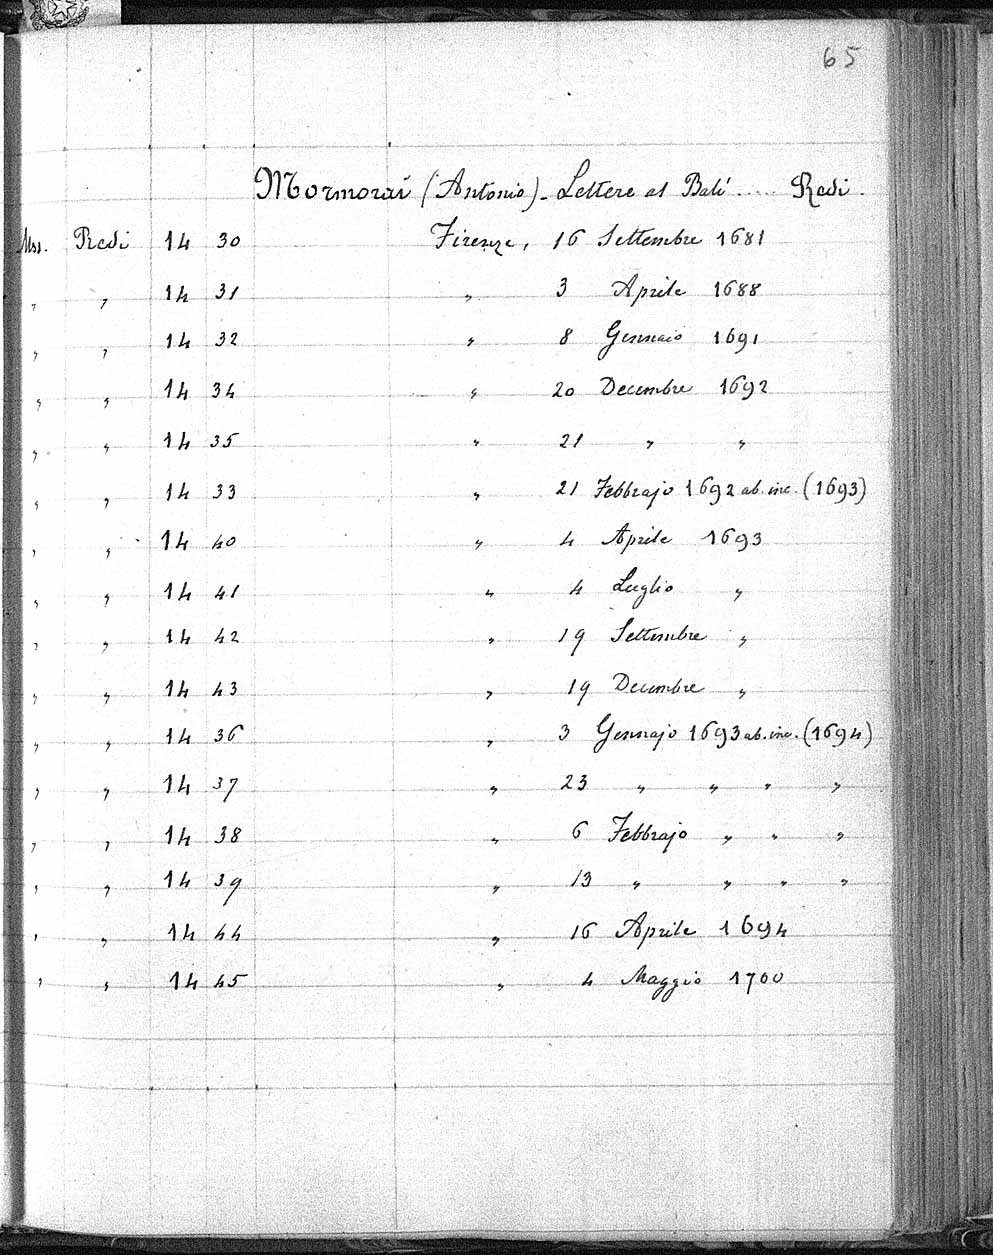 65
Mormorai (Antonio) - Lettere al Balì ..... Redi.
Mss. Redi 14 30 Firenze, 16 Settembre 1681
" " 14 31 " 3 Aprile 1688
" " 14 32 " 8 Gennaio 1691
" " 14 34 " 20 Decembre 1692
" " 14 35 " 21 " "
" " 14 33 " 21 Febbrajo 1692 ab. inc. (1693)
" " 14 40 " 4 Aprile 1693
" " 14 41 " 4 Luglio "
" " 14 42 " 19 Settembre "
" " 14 43 " 19 Decembre "
" " 14 36 " 3 Gennajo 1693 ab. inc. (1694)
" " 14 37 " 23 " " " "
" " 14 38 " 6 Febbrajo " " "
" " 14 39 " 13 " " " "
" " 14 44 " 16 Aprile 1694
" " 14 45 " 4 Maggio 1700